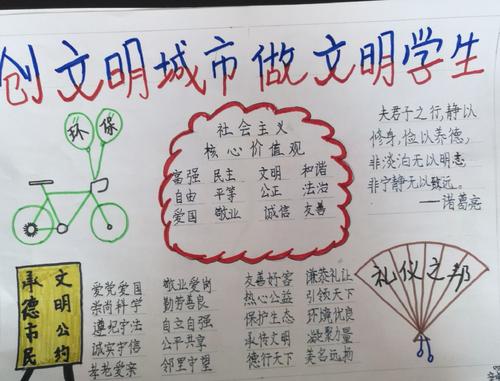 创文明城市做文明学生
环保
社会主义
核心价值观
富强 民主 文明 和谐
自由 平等 公正 法治
爱国 敬业 诚信 友善
夫君子之行,静以
修身,俭以养德,
非淡泊无以明志
非宁静无以致远。
——诸葛亮
承德市民
文明公约
爱党爱国
崇尚科学
遵纪守法
诚实守信
孝老爱亲
敬业爱岗
勤劳善良
自立自强
公平共享
邻里守望
友善好客
热心公益
保护生态
承传文明
德行天下
谦恭礼让
引领天下
环境优良
凝聚力量
美名远扬
礼仪之邦